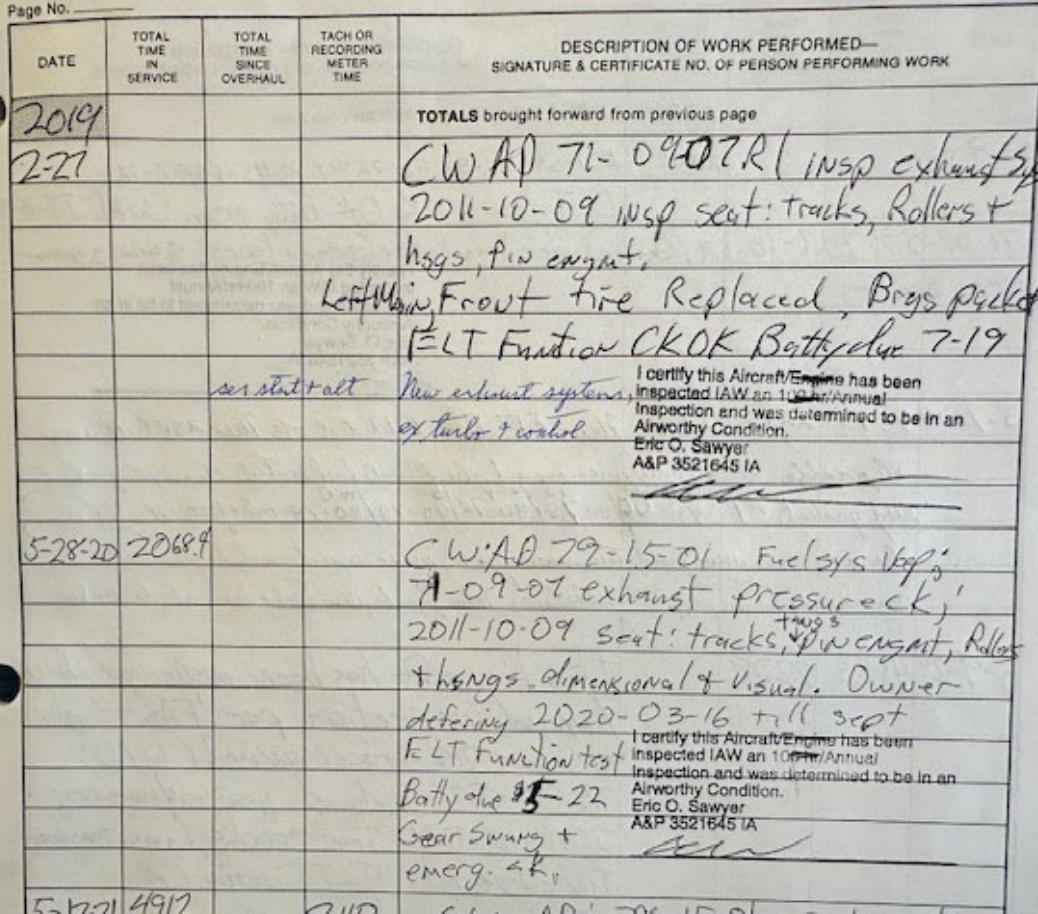 Page No.
DATE
TOTAL TIME IN SERVICE
TOTAL TIME SINCE OVERHAUL
TACH OR RECORDING METER TIME
DESCRIPTION OF WORK PERFORMED—
SIGNATURE & CERTIFICATE NO. OF PERSON PERFORMING WORK
2019
TOTALS brought forward from previous page
2-27 CW AD 71-09-07R1 insp exhaust Sy
2011-10-09 insp seat: tracks, Rollers +
hsgs, pin engmt.
Left Main, Front tire Replaced, Brgs packed
ELT Funtion CKOK Batty due 7-19
ser stat + alt New exhaust systems,
ex turbo + control.
I certify this Aircraft/Engine has been
inspected IAW an 100 hr/Annual
Inspection and was determined to be in an
Airworthy Condition.
Eric O. Sawyer
A&P 3521645 IA
5-28-20 2068.9 CW:AD 79-15-01 Fuel sys
71-09-07 exhaust pressure ck,
2011-10-09 seat: tracks, pin engmt, Rollers
+ hsngs. dimensional + Visual. Owner
defering 2020-03-16 till sept
ELT Function test
Batty due 5-22
Gear Swung +
emerg. ck.
I certify this Aircraft/Engine has been
inspected IAW an 100 hr/Annual
Inspection and was determined to be in an
Airworthy Condition.
Eric O. Sawyer
A&P 3521645 IA
5-17-21 4912